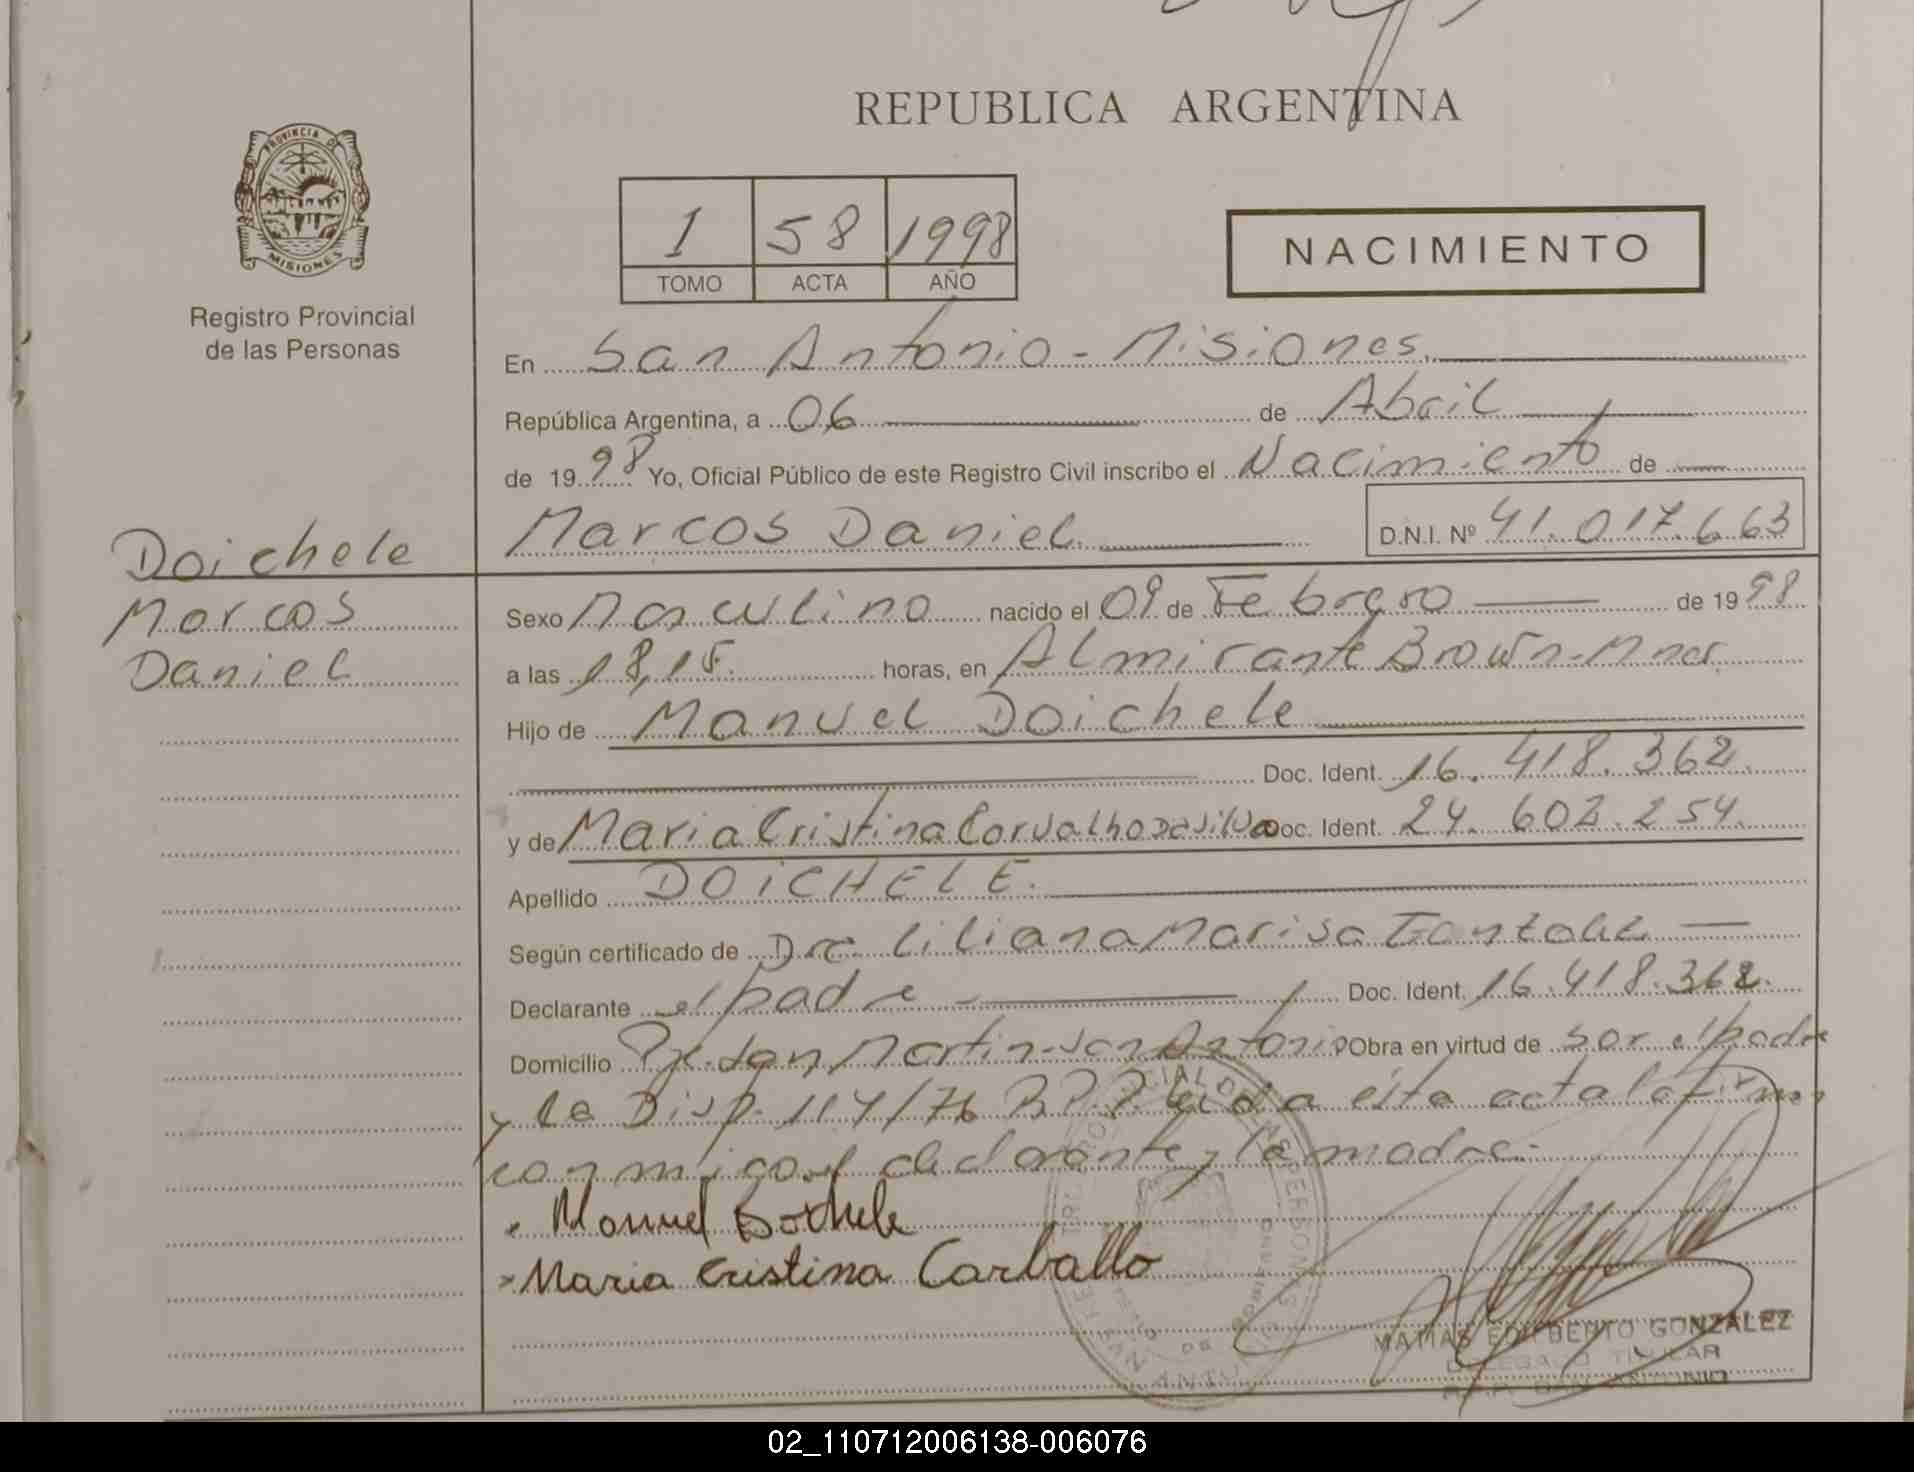 REPUBLICA ARGENTINA
PROVINCIA DE MISIONES
Registro Provincial
de las Personas
1 58 1998
TOMO ACTA AÑO
NACIMIENTO
En San Antonio - Misiones.
República Argentina, a 06 de Abril
de 1998 Yo, Oficial Público de este Registro Civil inscribo el Nacimiento de
Marcos Daniel D.N.I. Nº 41.017.663
Doichele
Marcos
Daniel
Sexo Masculino nacido el 09 de Febrero de 1998
a las 18,15 horas, en Almirante Brown-Mnes
Hijo de Manuel Doichele
Doc. Ident. 16.418.362
y de Maria Cristina Carvalho Da silva Doc. Ident. 24.602.254
Apellido DOICHELE.
Según certificado de Dra Liliana Marisa
Declarante el padre Doc. Ident. 16.418.362.
Domicilio San Martin-San Antonio Obra en virtud de ser el padre
y la Disp. 114/76 R.P.P. Leida esta acta la firman
conmigo el declarante y la madre.
Manuel Doichele
Maria Cristina Carballo
MATIAS EDILBERTO GONZALEZ
DELEGADO TITULAR
R.P.P. SAN ANTONIO
02_110712006138-006076